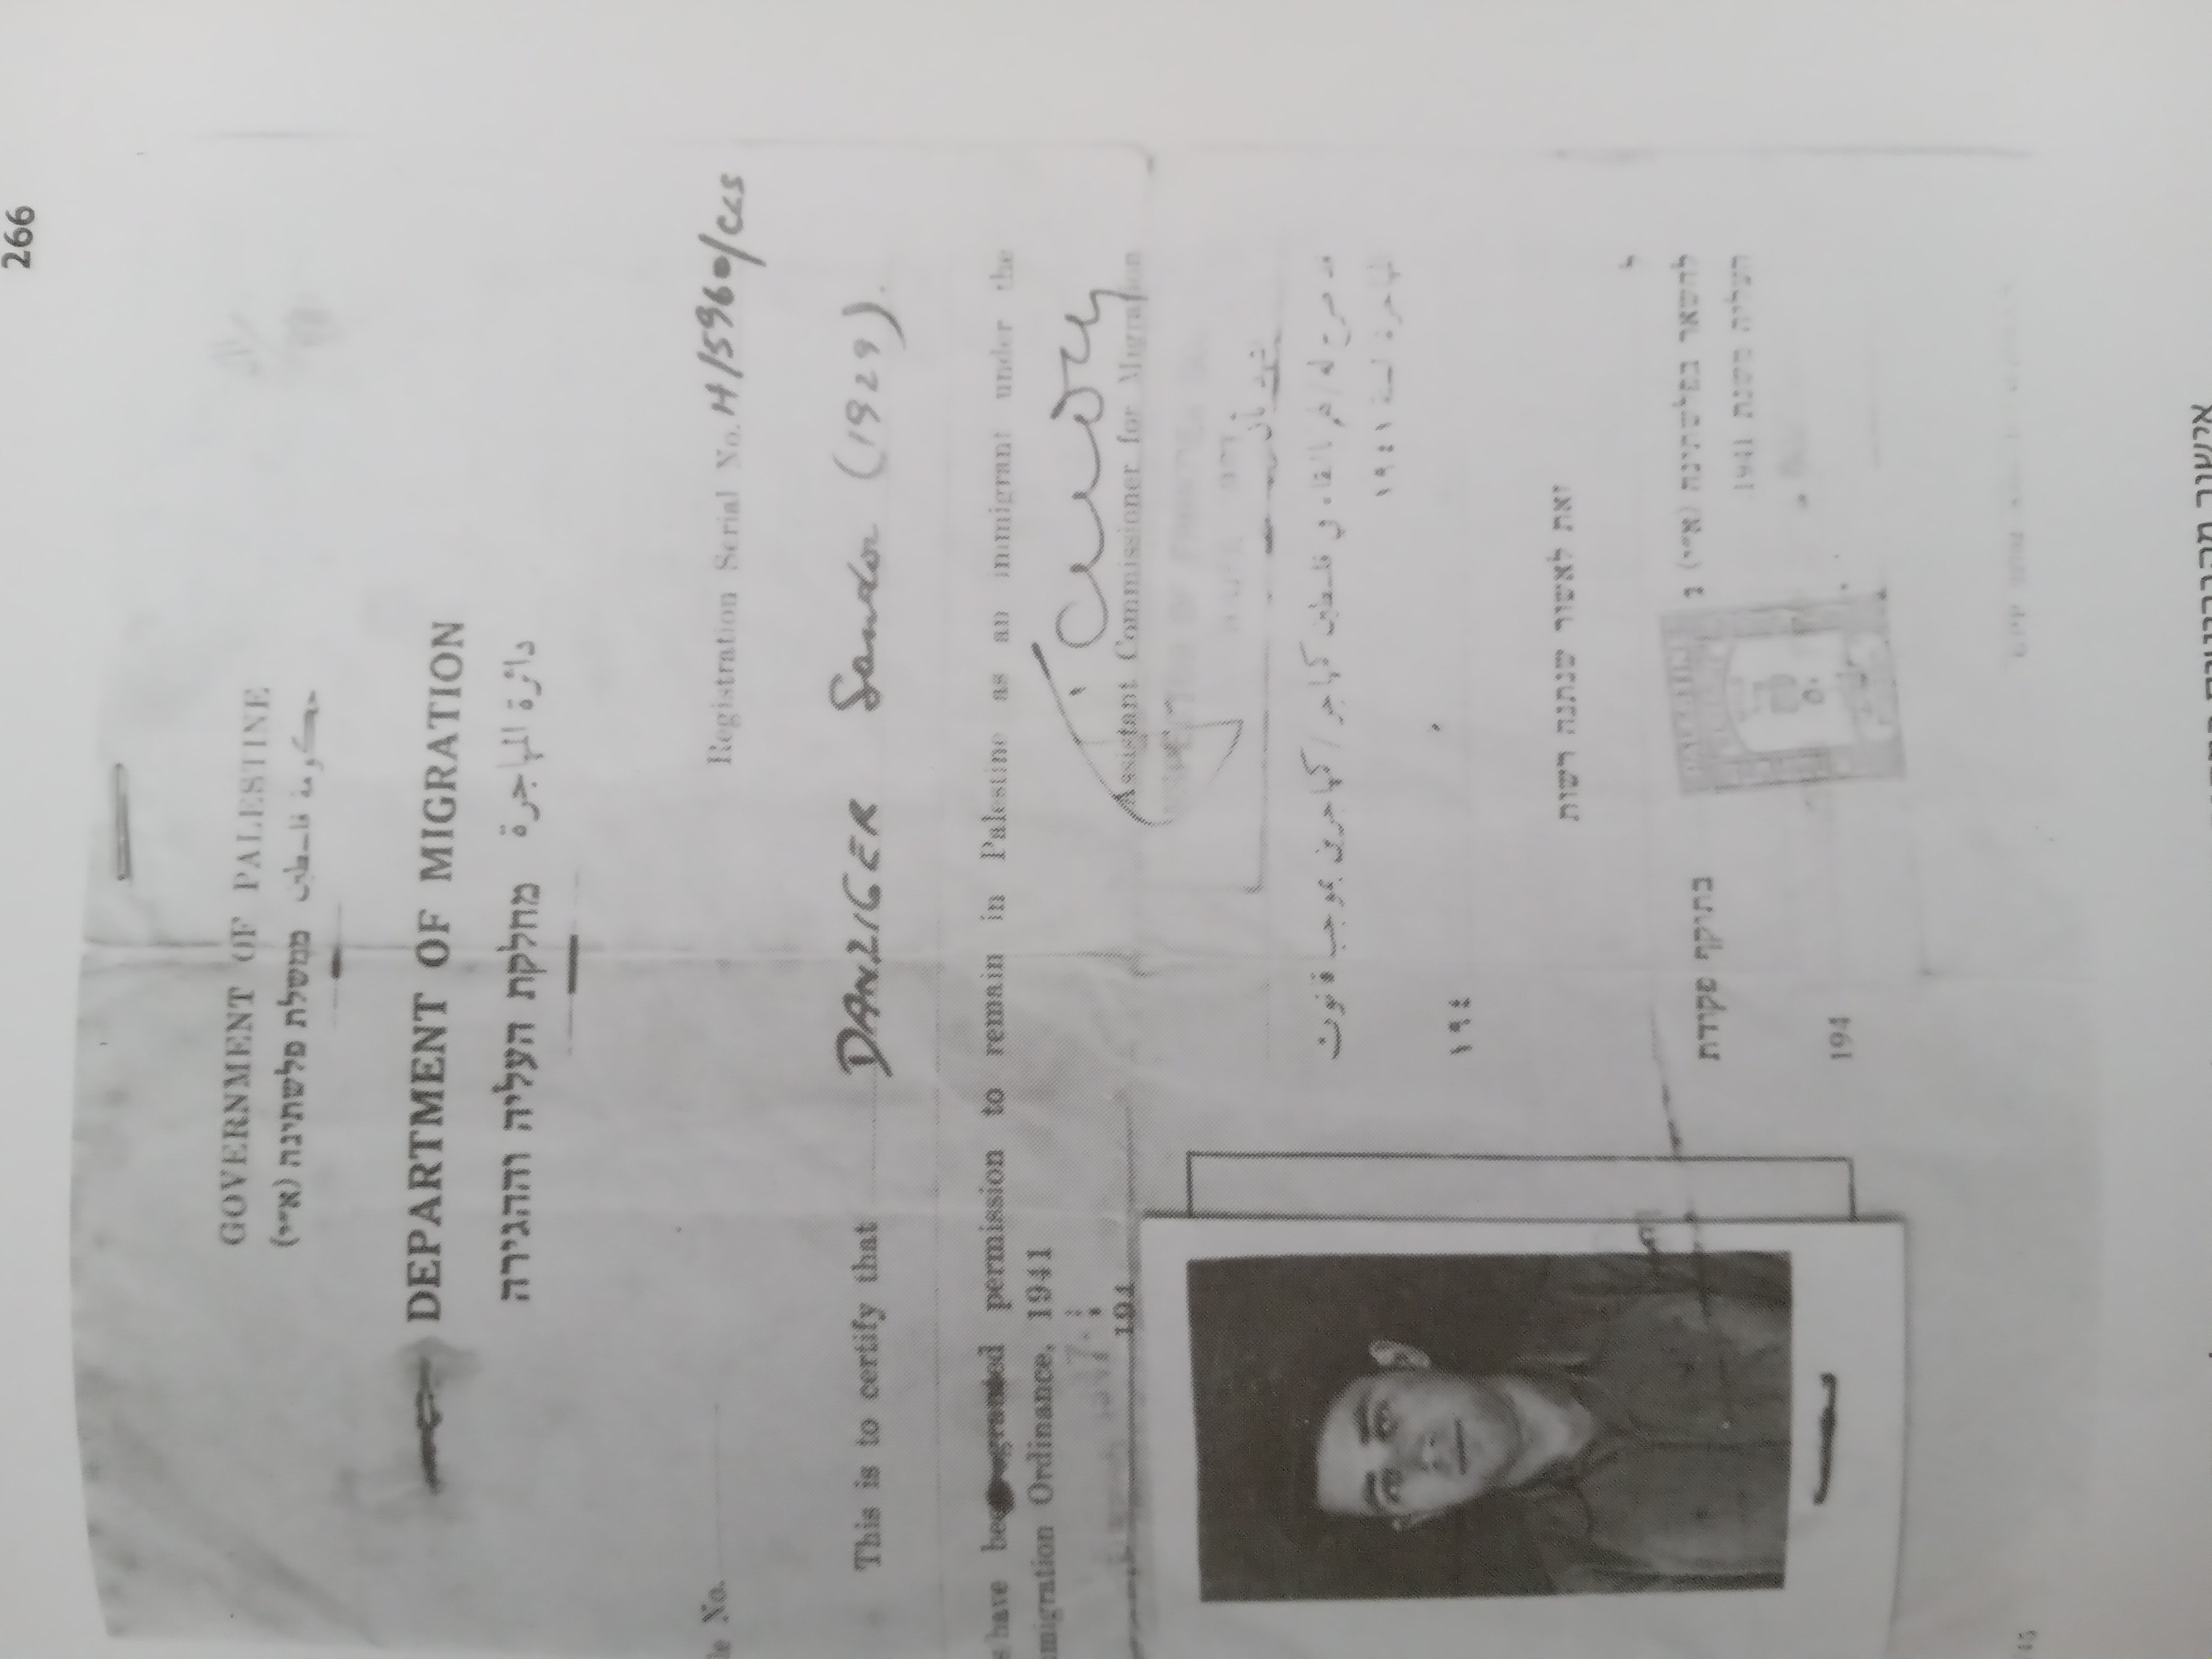 266
GOVERNMENT OF PALESTINE
حكومة فلسطين ממשלת פלשתינה (א״י)
DEPARTMENT OF MIGRATION
دائرة المهاجرة מחלקת העליה וההגירה
le No. Registration Serial No. H/5960/CCS
This is to certify that DANZIGER Sandor (1929).
s/have been granted permission to remain in Palestine as an immigrant under the
migration Ordinance, 1941
194
Assistant Commissioner for Migration
INSPECTOR OF FRONTIER
نشهد بأن
قد صرح له/لهم بالبقاء في فلسطين كمهاجر/كمهاجرين بموجب قانون
المهاجرة لسنة ١٩٤١
١٩٤
זאת לאשור שנתנה רשות
ל
להשאר בפלשתינה (א״י) בתיקף פקודת
העליה משנת 1941
PALESTINE
194
/45
אישור מהבריטים